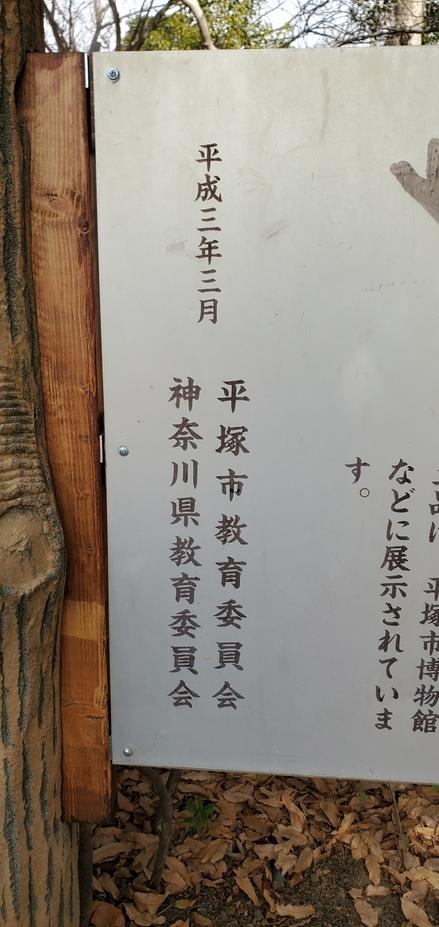 品は、平塚市博物館
などに展示されていま
す。
平成三年三月
平塚市教育委員会
神奈川県教育委員会